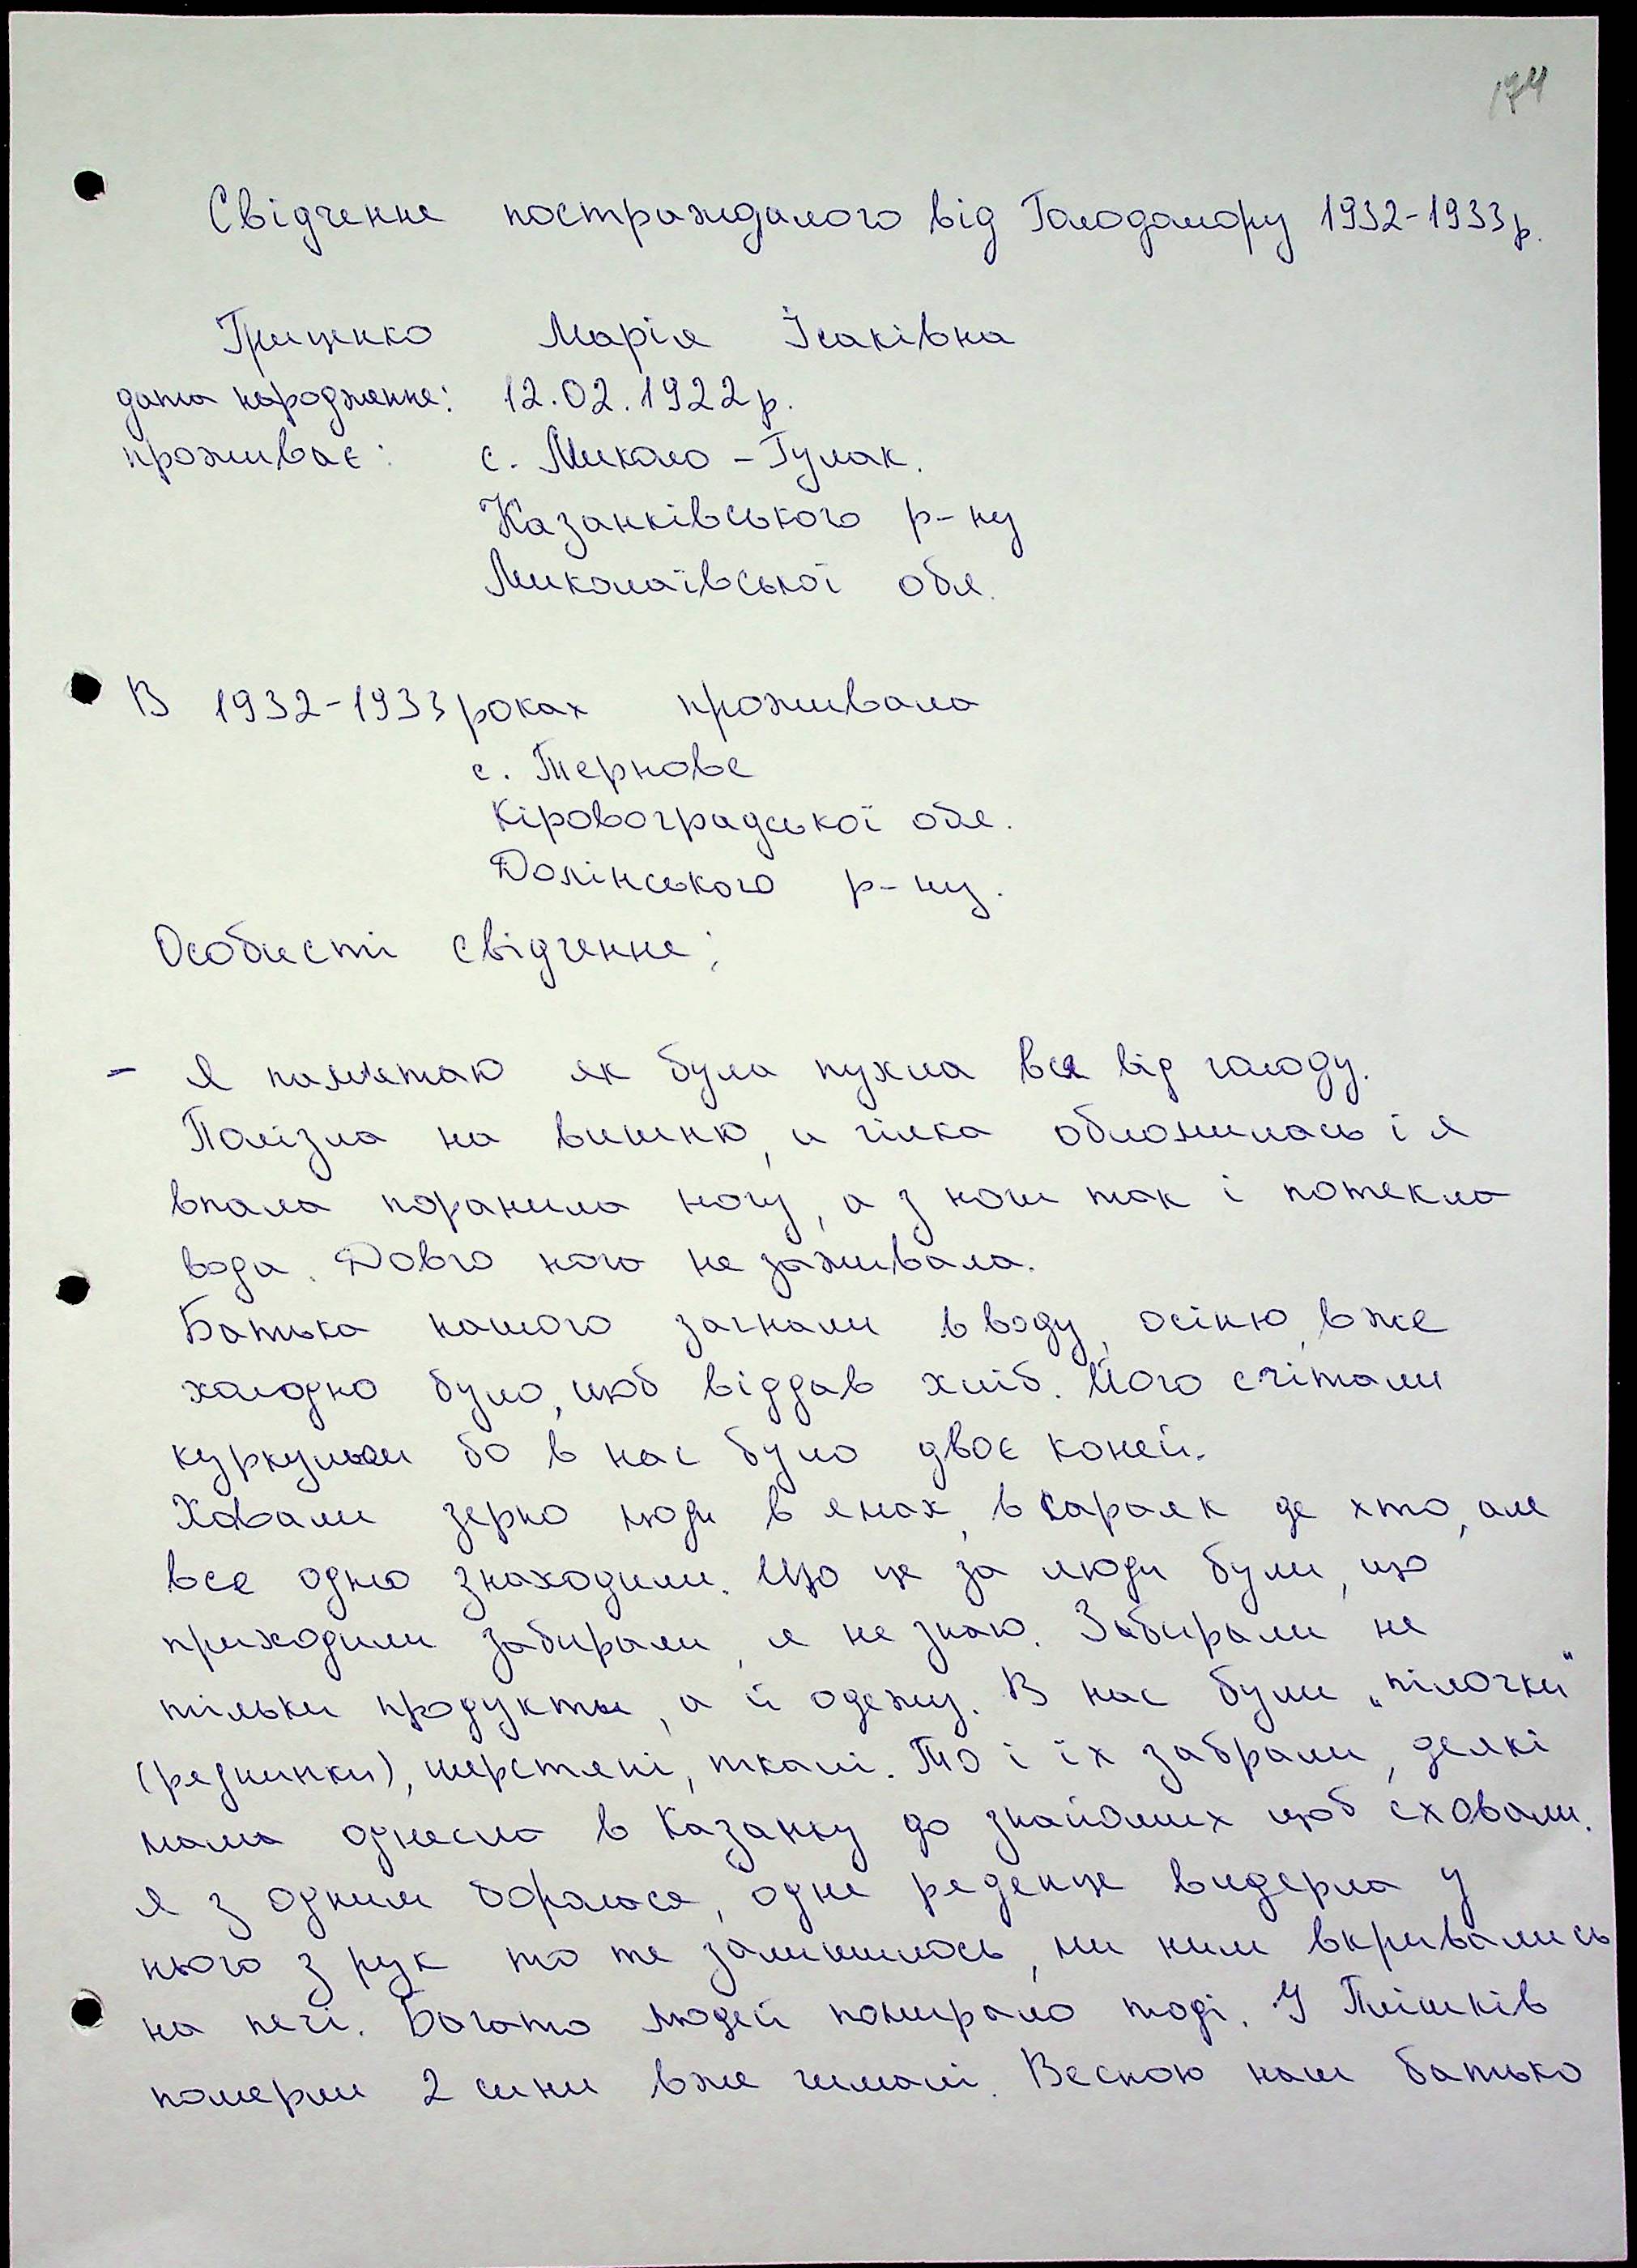 174
Свідчення постраждалого від Голодомору 1932-1933р.
Гриценко Марія Ісаківна
дата народження: 12.02.1922р.
проживає: с. Миколо-Гулак.
Казанківського р-ну
Миколаївської обл.
В 1932-1933 роках проживала
с. Тернове
Кіровоградської обл.
Долінського р-ну.
Особисті свідчення:
- Я пам'ятаю як була пухла вся від голоду.
Полізла на вишню, а гілка обломилась і я
впала поранила ногу, а з ноги так і потекла
вода. Довго нога не заживала.
Батька нашого загнали в воду, осінню, вже
холодно було, щоб віддав хліб. Його счітали
куркульом бо в нас було двоє коней.
Ховали зерно люди в ямах, в сараях де хто, але
все одно знаходили. Що це за люди були, що
приходили забирали, я не знаю. Забирали не
тільки продукты, а й одежу. В нас були „пілочки"
(реднинки), шерстяні, ткані. То і їх забрали, деякі
мама однесла в Казанку до знайомих щоб сховали.
Я з одним боролася, одне реденце видерла у
нього з рук то те залишилось, ми ним вкривались
на печі. Багато людей помирало тоді. У Плішків
померли 2 сини вже чималі. Весною наш батько